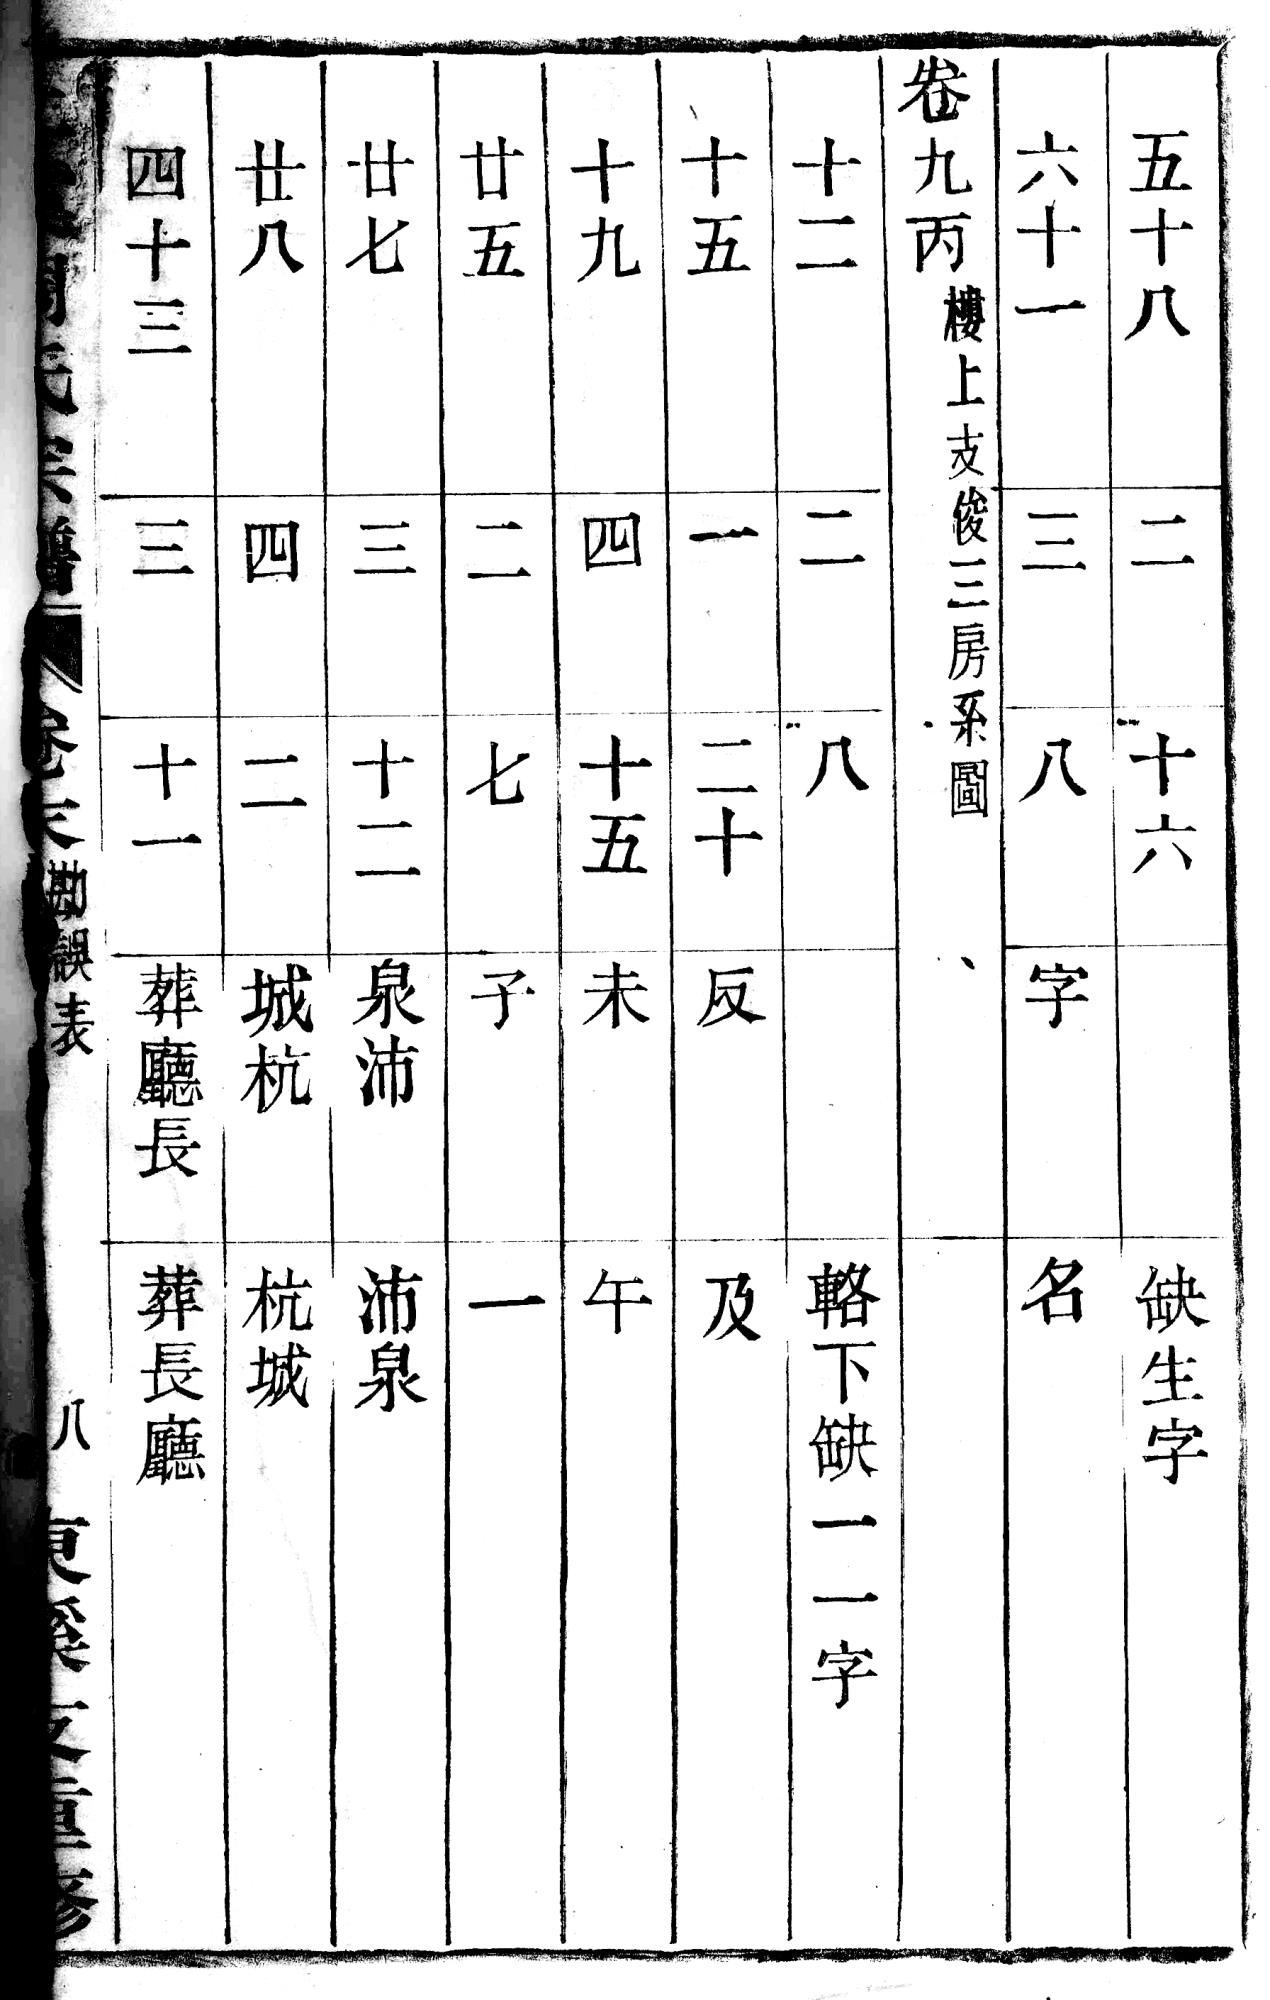 五十八 二 十六 缺生字
六十一 三 八 字 名
卷九丙 樓上支俊三房系圖
十二 二 八 輅下缺一一字
十五 一 二十 反 及
十九 四 十五 未 午
廿五 二 七 子 一
廿七 三 十二 泉沛 沛泉
廿八 四 二 城杭 杭城
四十三 三 十一 葬廳長 葬長廳
氏宗譜 卷末 勘誤表 八 東溪支重修